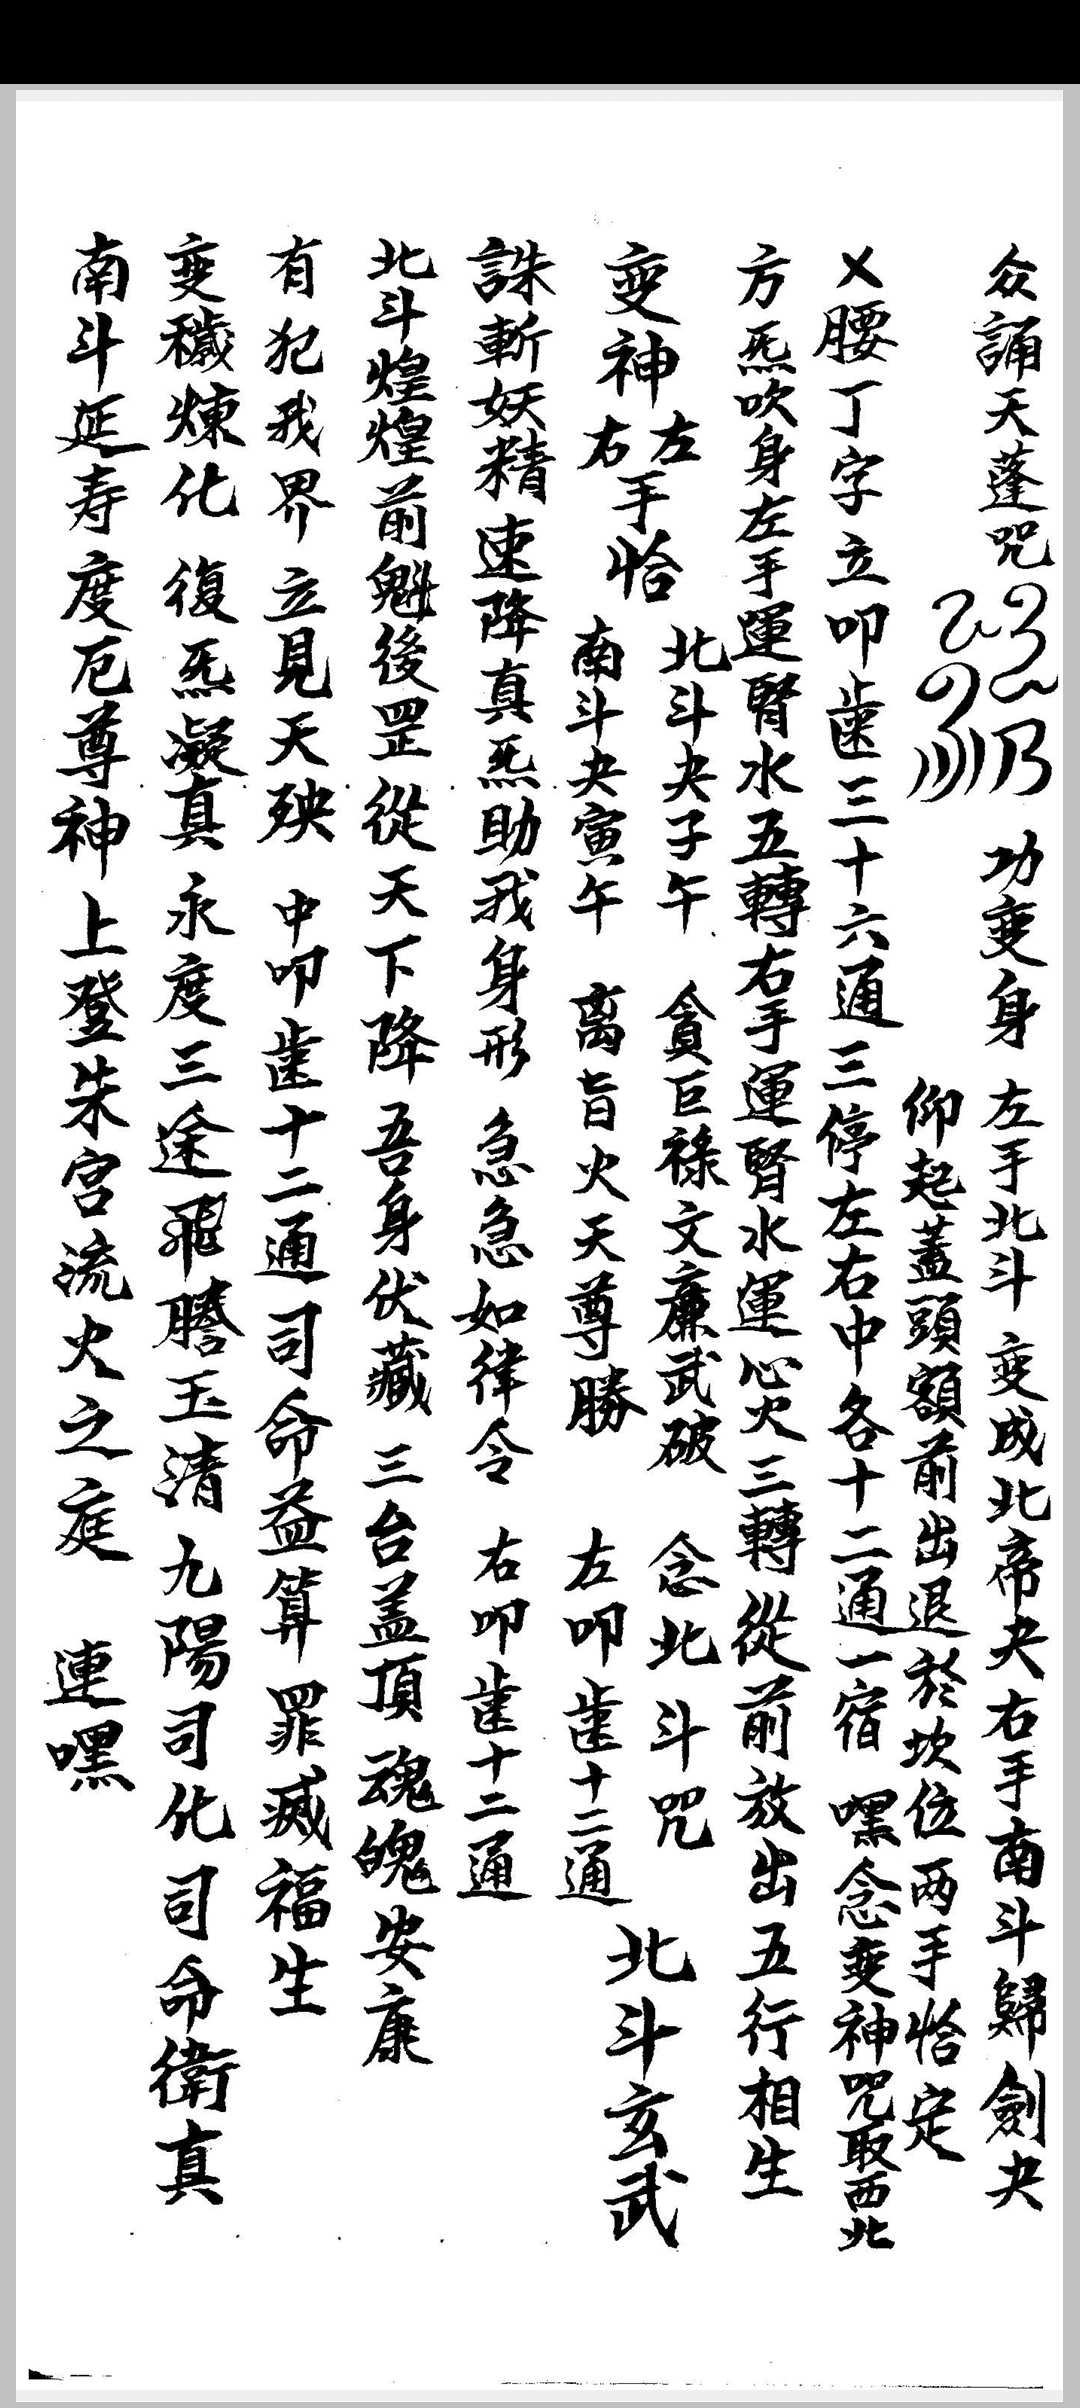 众誦天蓬咒 功变身 左手北斗 变成北帝夬右手南斗歸劍夬
仰起蓋頭額前出退於坎位两手恰定
㐅腰丁字立叩歯三十六通 三停左右中各十二通一宿 嘿念变神咒取西北
方炁吹身左手運腎水五轉右手運腎水運心火三轉從前放出五行相生
变神左右手恰
北斗夬子午 貪巨祿文廉武破 念北斗咒
南斗夬寅午 离旨火天尊勝 左叩歯十二通
北斗玄武
誅斬妖精速降真炁助我身形 急急如律令 右叩歯十二通
北斗煌煌前魁後罡從天下降 吾身伏藏 三台盖頂 魂魄安康
有犯我界 立見天殃 中叩歯十二通 司命益算 罪滅福生
变穢煉化 復炁凝真 永度三途飛騰玉清 九陽司化司命衛真
南斗延寿度厄尊神 上登朱宮流火之庭 連嘿